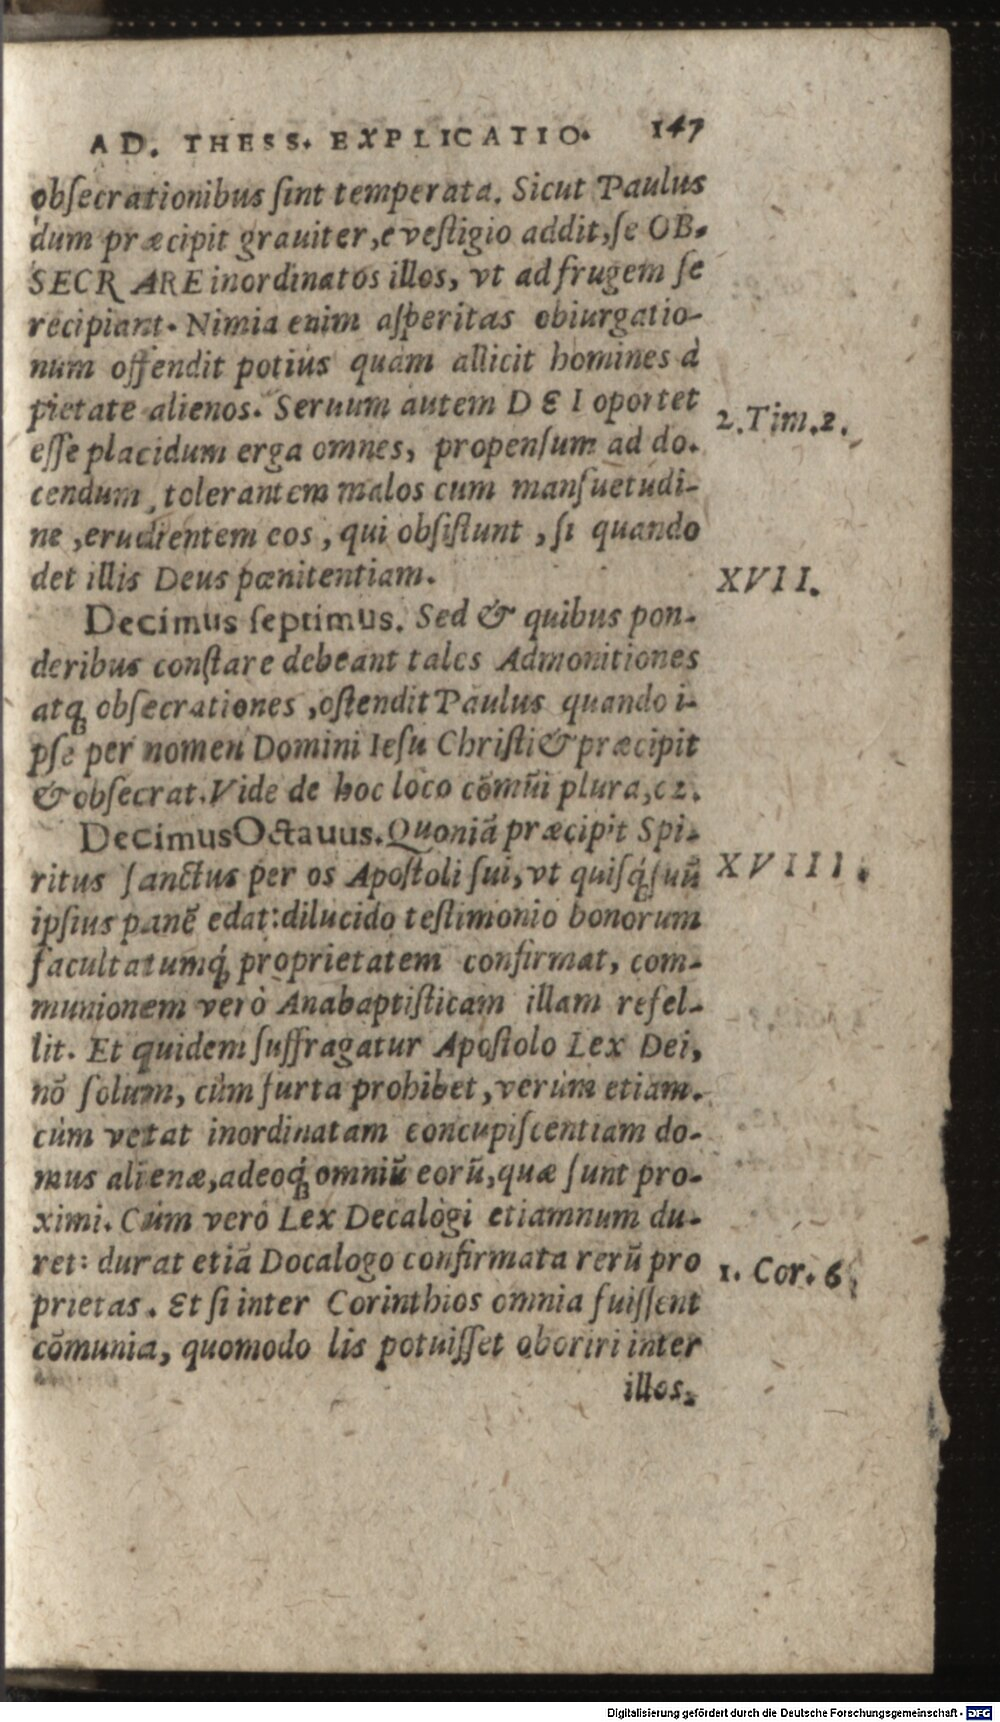 AD. THESS. EXPLICATIO. 147
obſecrationibus ſint temperata. Sicut Paulus
dum præcipit grauiter, e veſtigio addit, ſe OB-
SECRARE inordinatos illos, vt ad frugem ſe
recipiant. Nimia enim aſperitas obiurgatio-
num offendit potiùs quàm allicit homines à
pietate alienos. Seruum autem DEI oportet
2. Tim. 2.
eſſe placidum erga omnes, propenſum ad do-
cendum, tolerantem malos cum manſuetudi-
ne, erudientem eos, qui obſiſtunt, ſi quando
det illis Deus pœnitentiam.
XVII.
Decimus ſeptimus. Sed & quibus pon-
deribus conſtare debeant tales Admonitiones
atq; obſecrationes, oſtendit Paulus quando i-
pſe per nomen Domini Ieſu Chriſti & præcipit
& obſecrat. Vide de hoc loco cōmūi plura, c 2.
Decimus Octauus. Quoniā præcipit Spi-
ritus ſanctus per os Apoſtoli ſui, vt quiſq́; ſuū
XVIII.
ipſius panē edat: dilucido teſtimonio bonorum
facultatumq́; proprietatem confirmat, com-
munionem verò Anabaptiſticam illam refel-
lit. Et quidem ſuffragatur Apoſtolo Lex Dei,
nō ſolum, cùm furta prohibet, verùm etiam
cùm vetat inordinatam concupiſcentiam do-
mus alienæ, adeoq́; omniū eorū, quæ ſunt pro-
ximi. Cùm verò Lex Decalògi etiamnum du-
ret: durat etiā Docalogo confirmata rerū pro
1. Cor. 6.
prietas. Et ſi inter Corinthios omnia fuiſſent
cōmunia, quomodo lis potuiſſet oboriri inter
illos.
Digitalisierung gefördert durch die Deutsche Forschungsgemeinschaft - DFG